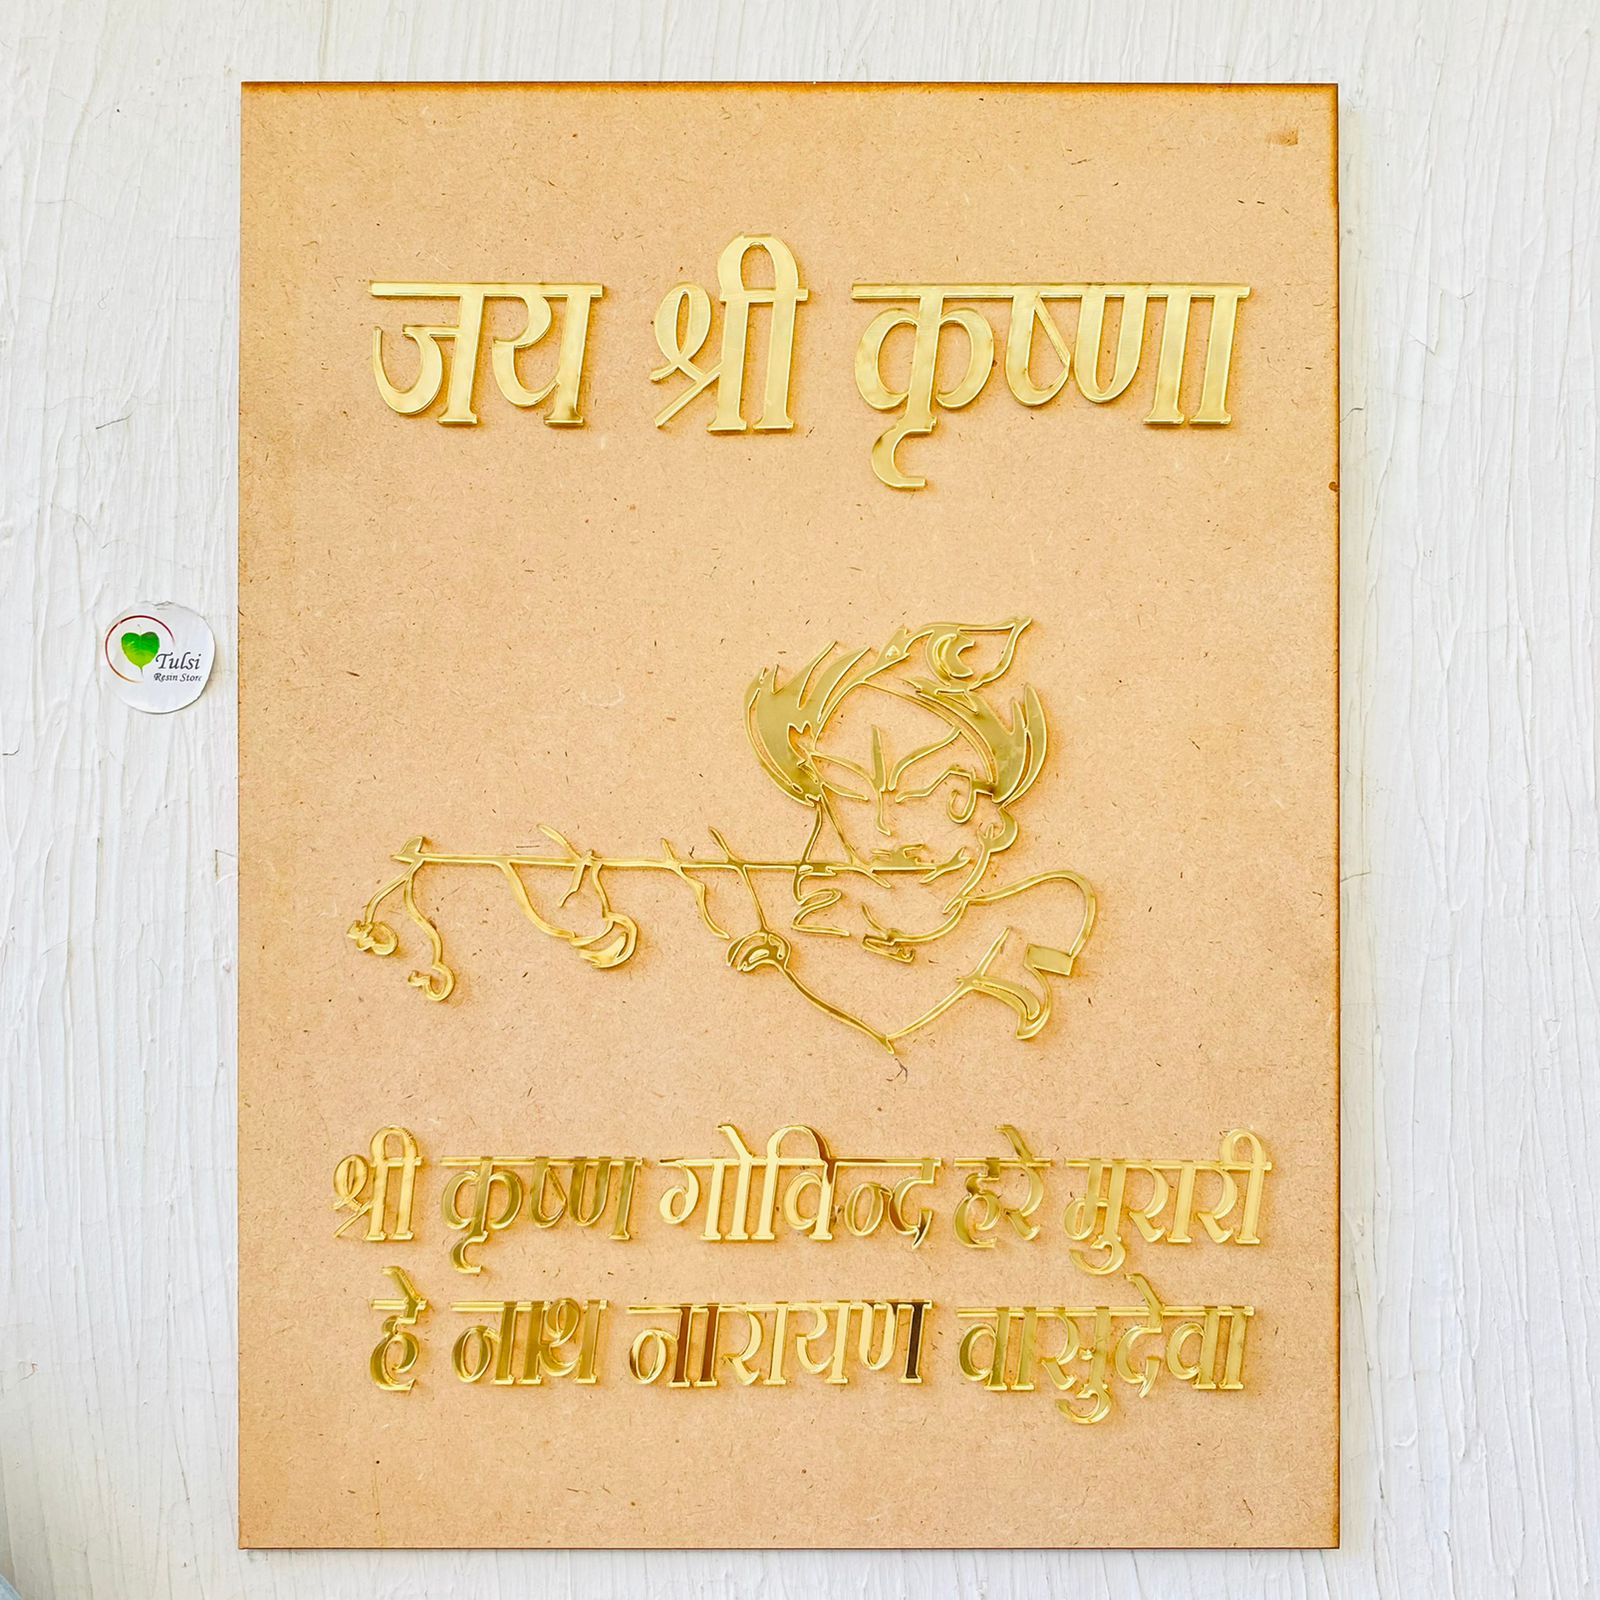 जय श्री कृष्णा
Tulsi
Resin Store
श्री कृष्ण गोविन्द हरे मुरारी
हे नाथ नारायण वासुदेवा